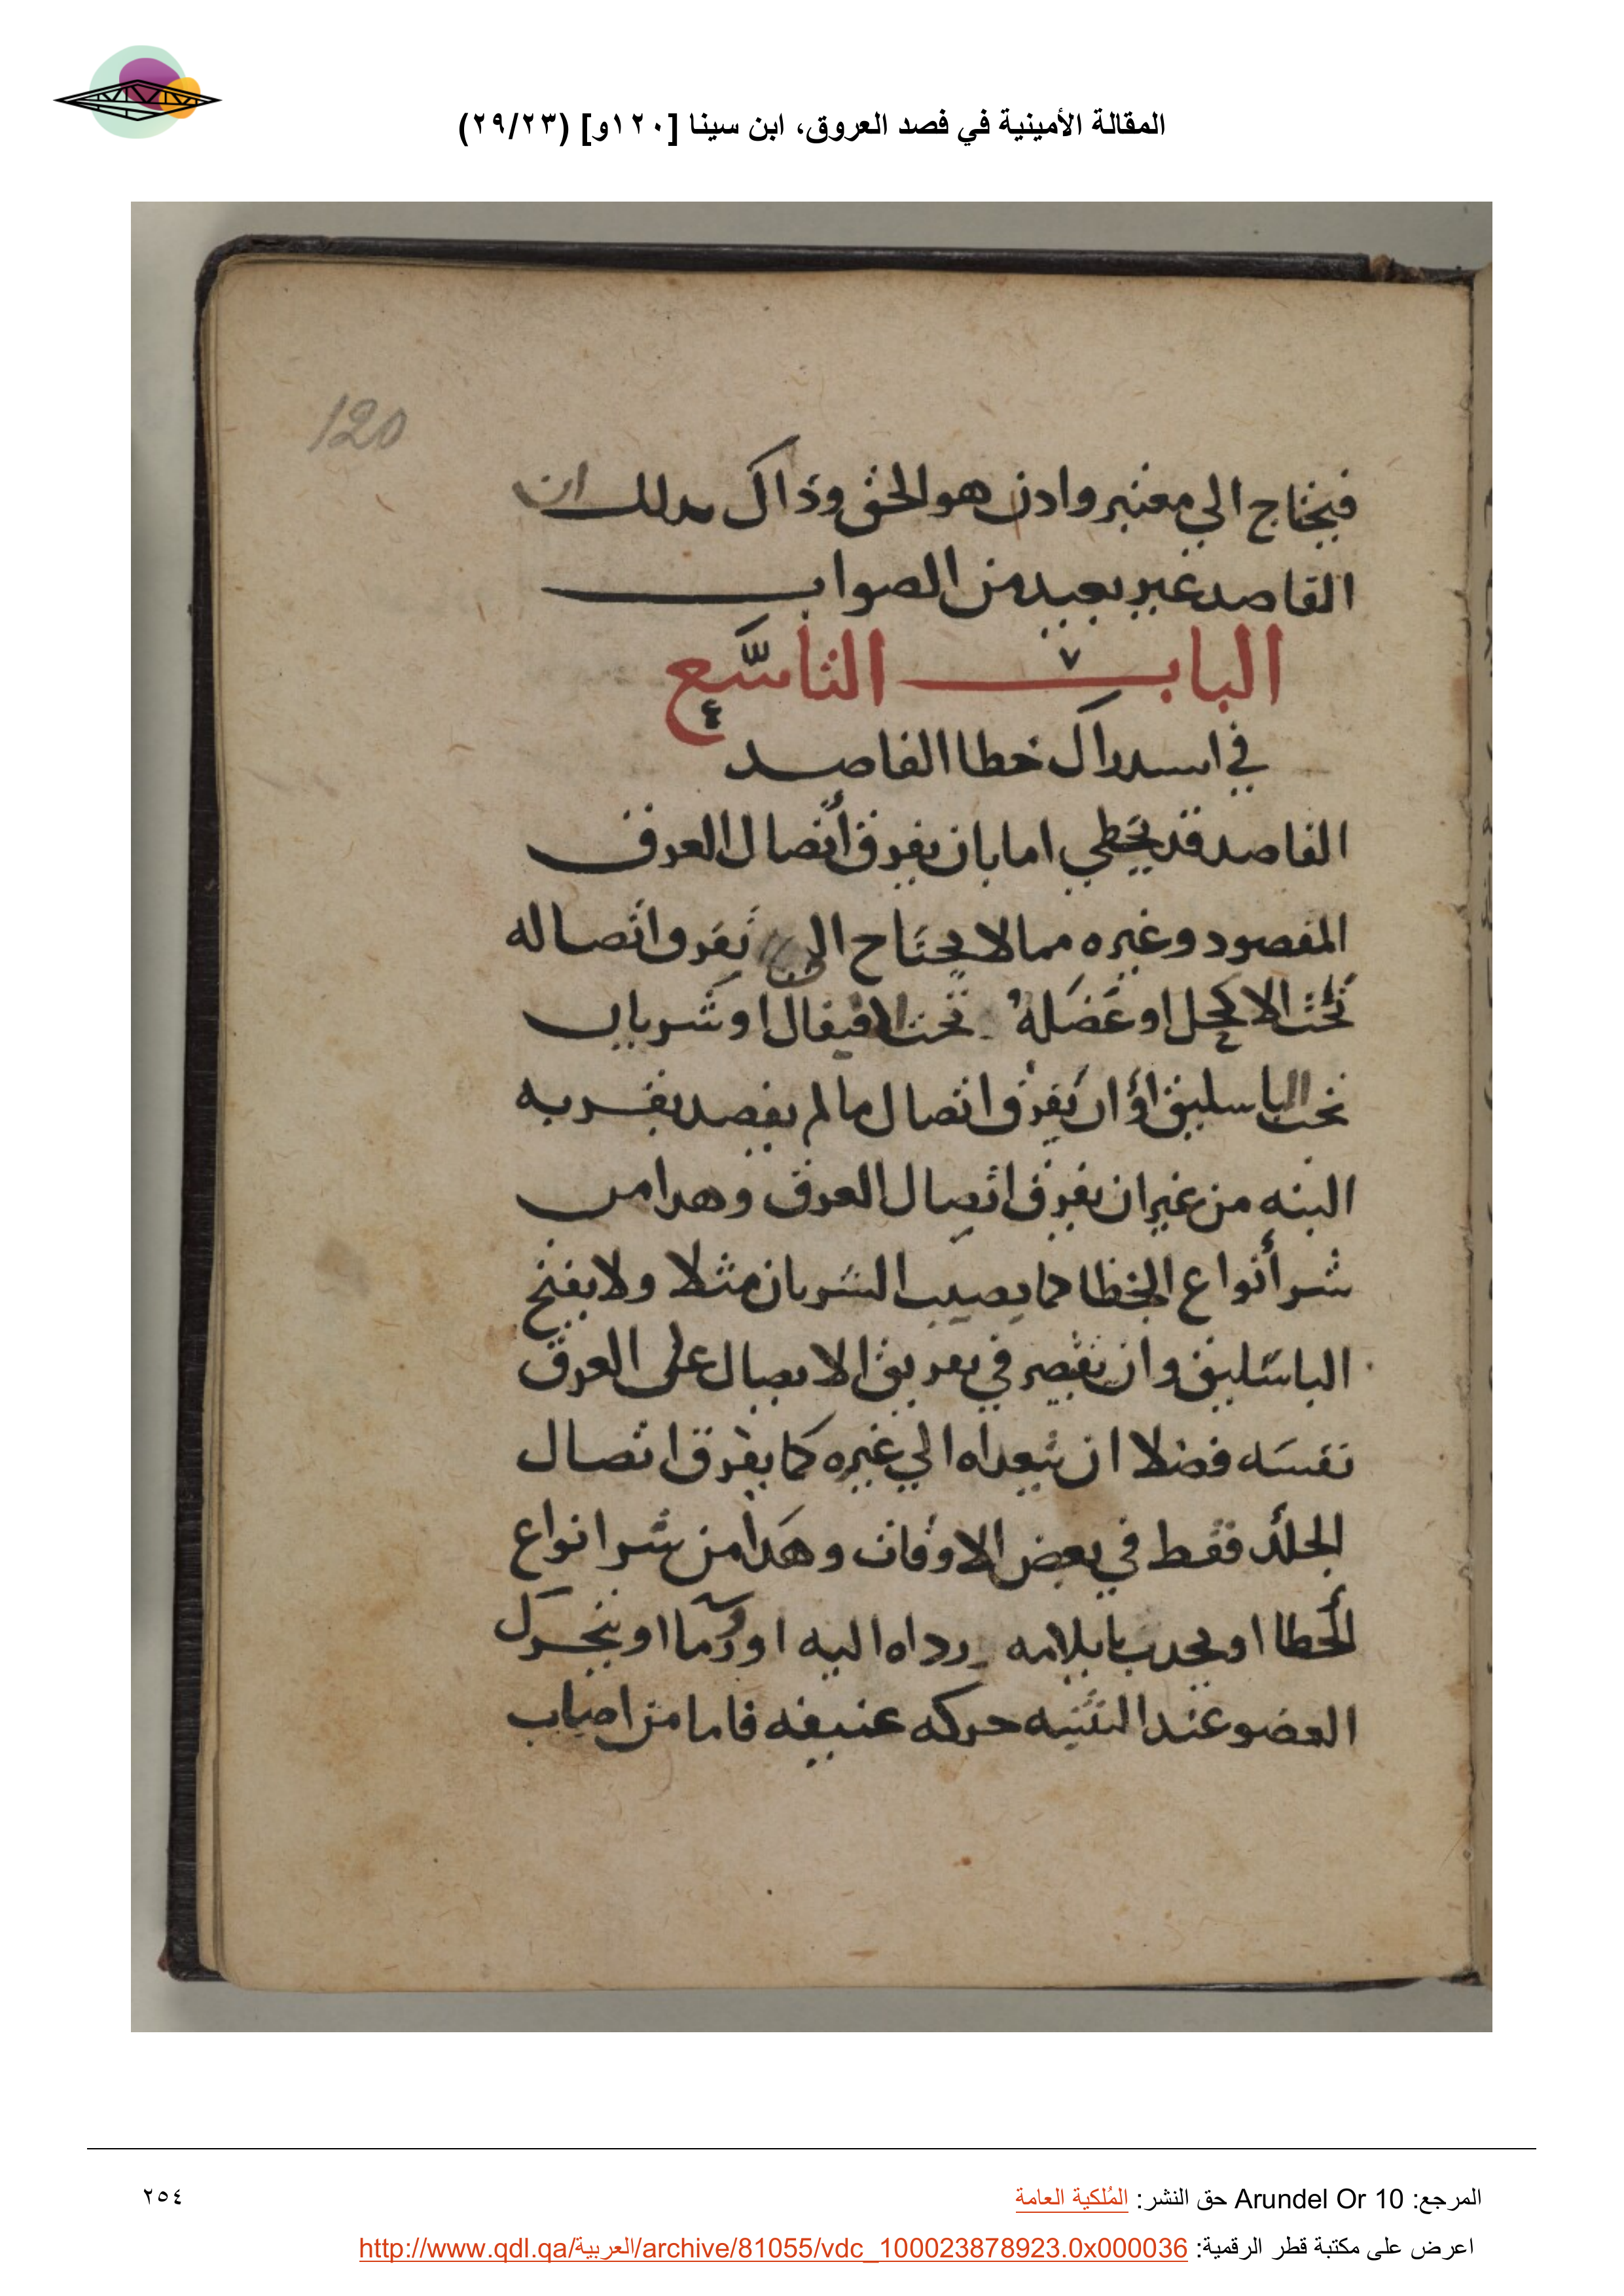 المقالة الأمينية في فصد العروق، ابن سينا [١٢٠و] (٢٩/٢٣)
120
فيحتاج الي معتبر وادن هو الحق وذاك
القاصد غير بعيد من الصواب
الباب التاسع
في اسدراك خطا الفاصد
الفاصد قد يخطي اما بان يفرق أتصال العرق
المفصود وغيره مما لا يحتاج الي تفرق اتصاله
تحت الاكحل او عضلة تحت القيفال او شريان
تحت الباسليق او ان يفرق اتصال ما لم يفصد تفريه
البته من غير ان يفرق اتصال العرق وهدا من
شر أنواع الخطا كما يصيب الشريان مثلا ولا يفتح
الباسليق وان يقصر في تفريق الاتصال على العرق
نفسه فضلا ان يتعداه الي غيره كما يفرق اتصال
الجلد فقط في بعض الاوقات وهدا من شر انواع
الخطا او يحدث رداه اليه او ورما او يتحرك
العضو عند التثنيه حركه عنيفه فاما من اصاب
المرجع: Arundel Or 10 حق النشر: المُلكية العامة
٢٥٤
اعرض على مكتبة قطر الرقمية: http://www.qdl.qa/العربية/archive/81055/vdc_100023878923.0x000036